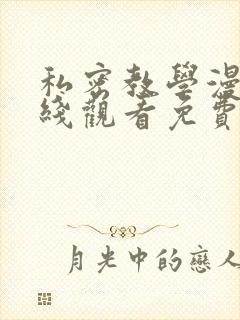 私密教學漫
綫觀看免費
月光中的戀人